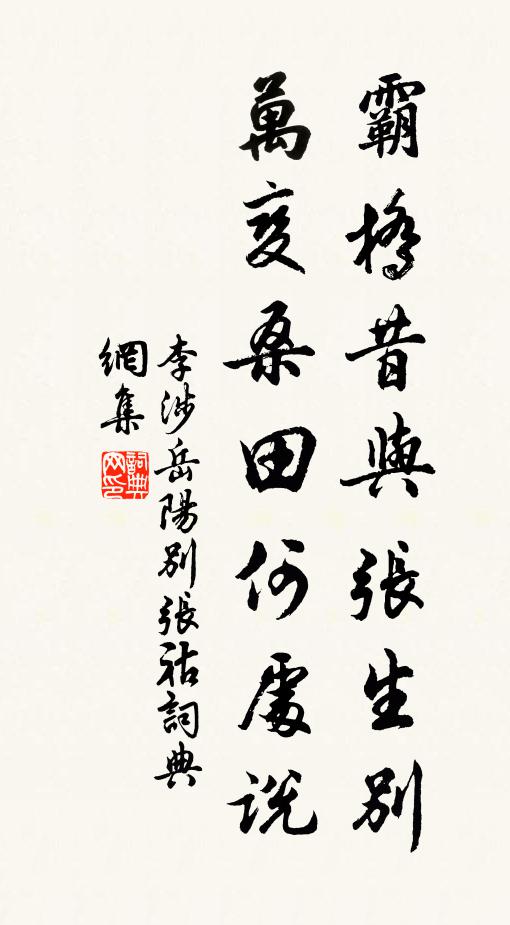 霸橋昔與張生別
萬變桑田何處說
李涉岳陽別張祜詞典
網集
詞典網印